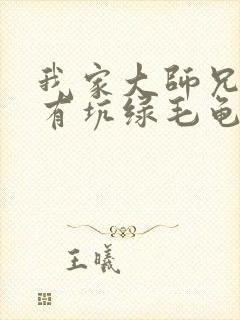 我家大師兄
有坑绿毛龟
王曦